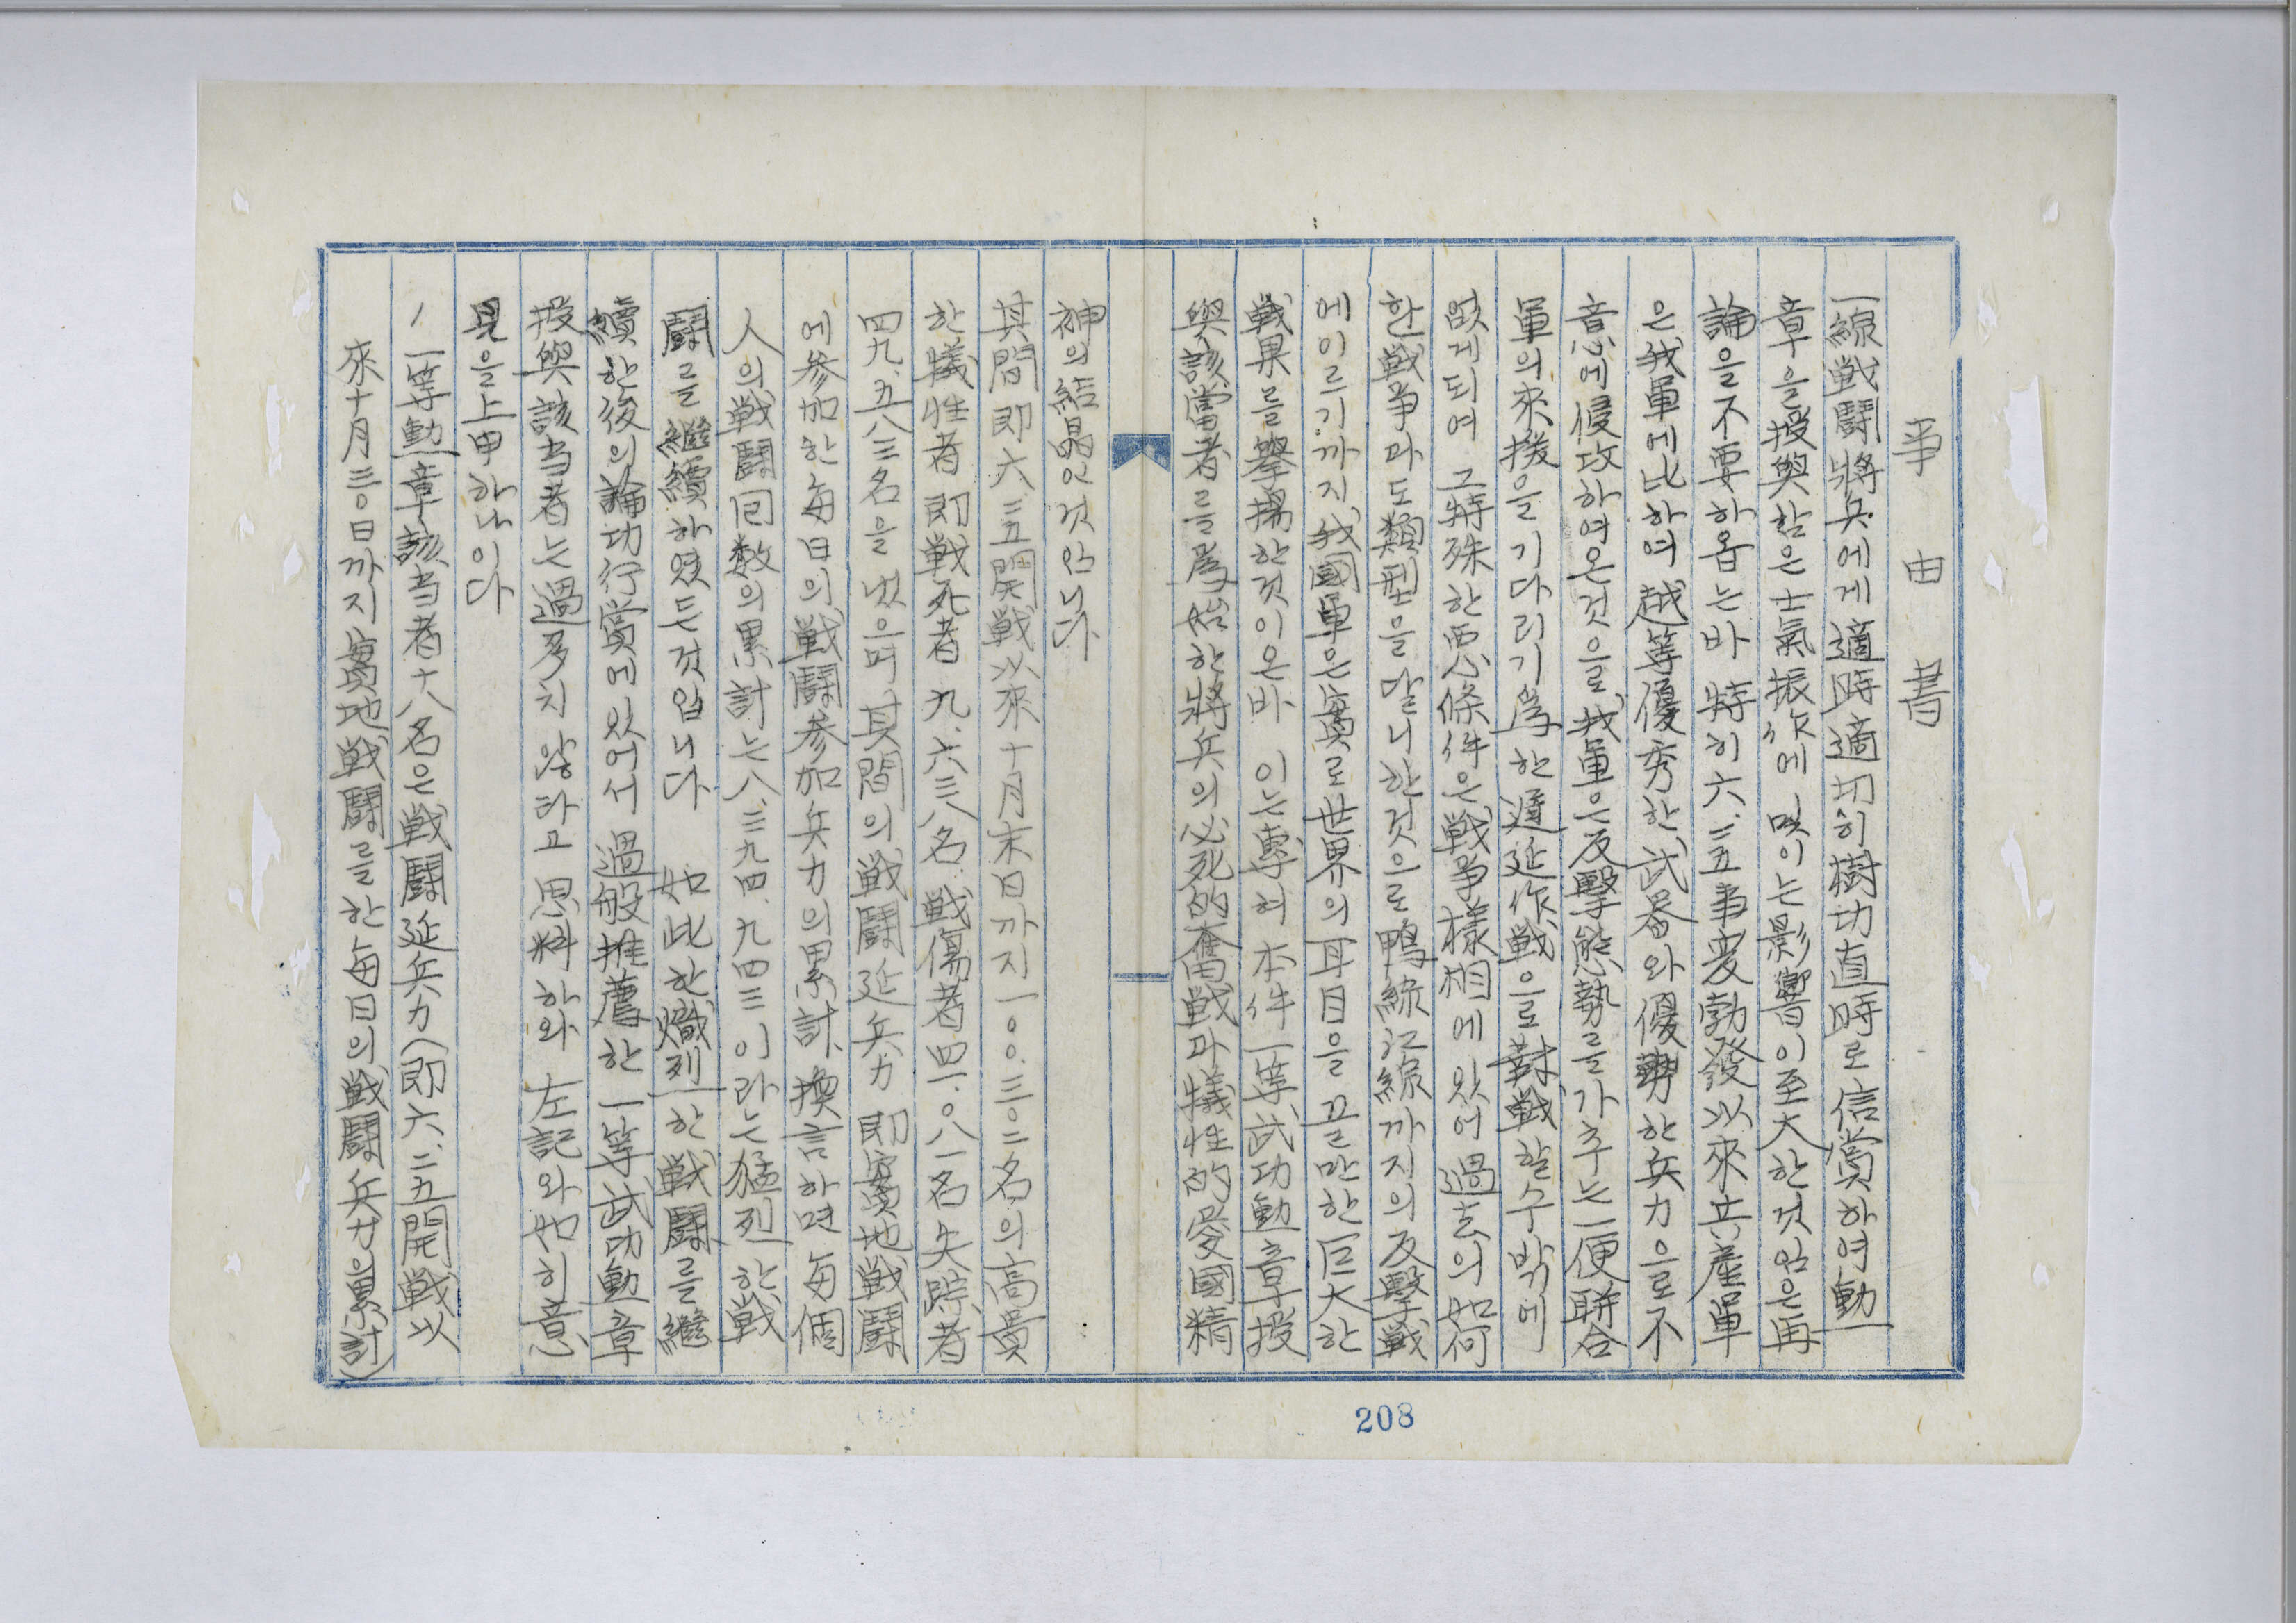 事由書
一線戦鬪將兵에게 適時適切히 樹功直時로 信賞하여 勳
章을 授與함은 士氣振作에 및이는 影響이 至大한것임은 再
論을 不要하옵는바 特히 六.二五事変勃發以來 共産軍
은 我軍에 比하여 越等優秀한 武器와 優勢한 兵力으로 不
意에 侵攻하여온것으로 我軍은 反擊態勢를 가추는 一便 聯合
軍의 來援을 기다리기 爲한 遲延作戦으로 對戦할수밖에
없게되여 그 特殊한 悪條件은 戦争樣相에 있어 過去의 如何
한 戦争과도 類型을 달니한것으로 鴨綠江線까지의 反擊戦
에이르기까지 我國軍은 實로 世界의 耳目을 끌만한 巨大한
戦果를 擧揚한것이온바 이는 專혀 本件 一等武功勳章 授
與該當者를 爲始한 將兵의 必死的奮戦과 犠牲的愛國精
神의 結晶인것입니다
其間 即 六.二五開戦以來 十月末日까지 一〇〇.三〇二名의 高貴
한 犠牲者 即 戦死者 九.六三八名 戦傷者 四一.〇八一名 失踪者
四九.五八三名을 냈으며 其間의 戦鬪延兵力 即 實地戦鬪
에 參加한 每日의 戦鬪參加兵力의 累計 換言하면 每個
人의 戦鬪回数의 累計는 八.三九四.九四三이라는 猛烈한 戦
鬪를 繼續하였든것입니다 如此한 熾烈한 戦鬪를 繼
續한後의 論功行賞에 있어서 過般推薦한 一等武功勳章
授與該当者는 過多치 않타고 思料하와 左記와 如히 意
見을 上申하나이다
1 一等勳章該当者 十八名은 戦鬪延兵力(即 六.二五開戦以
來十月三〇日까지 實地戦鬪를한 每日의 戦鬪兵力을 累計)
208